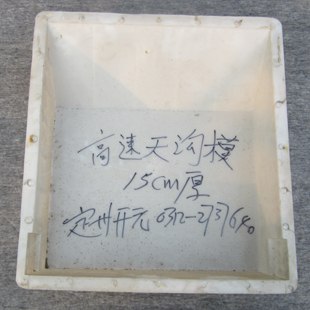 高速天沟模
15cm厚
定州开元 0312-2313640